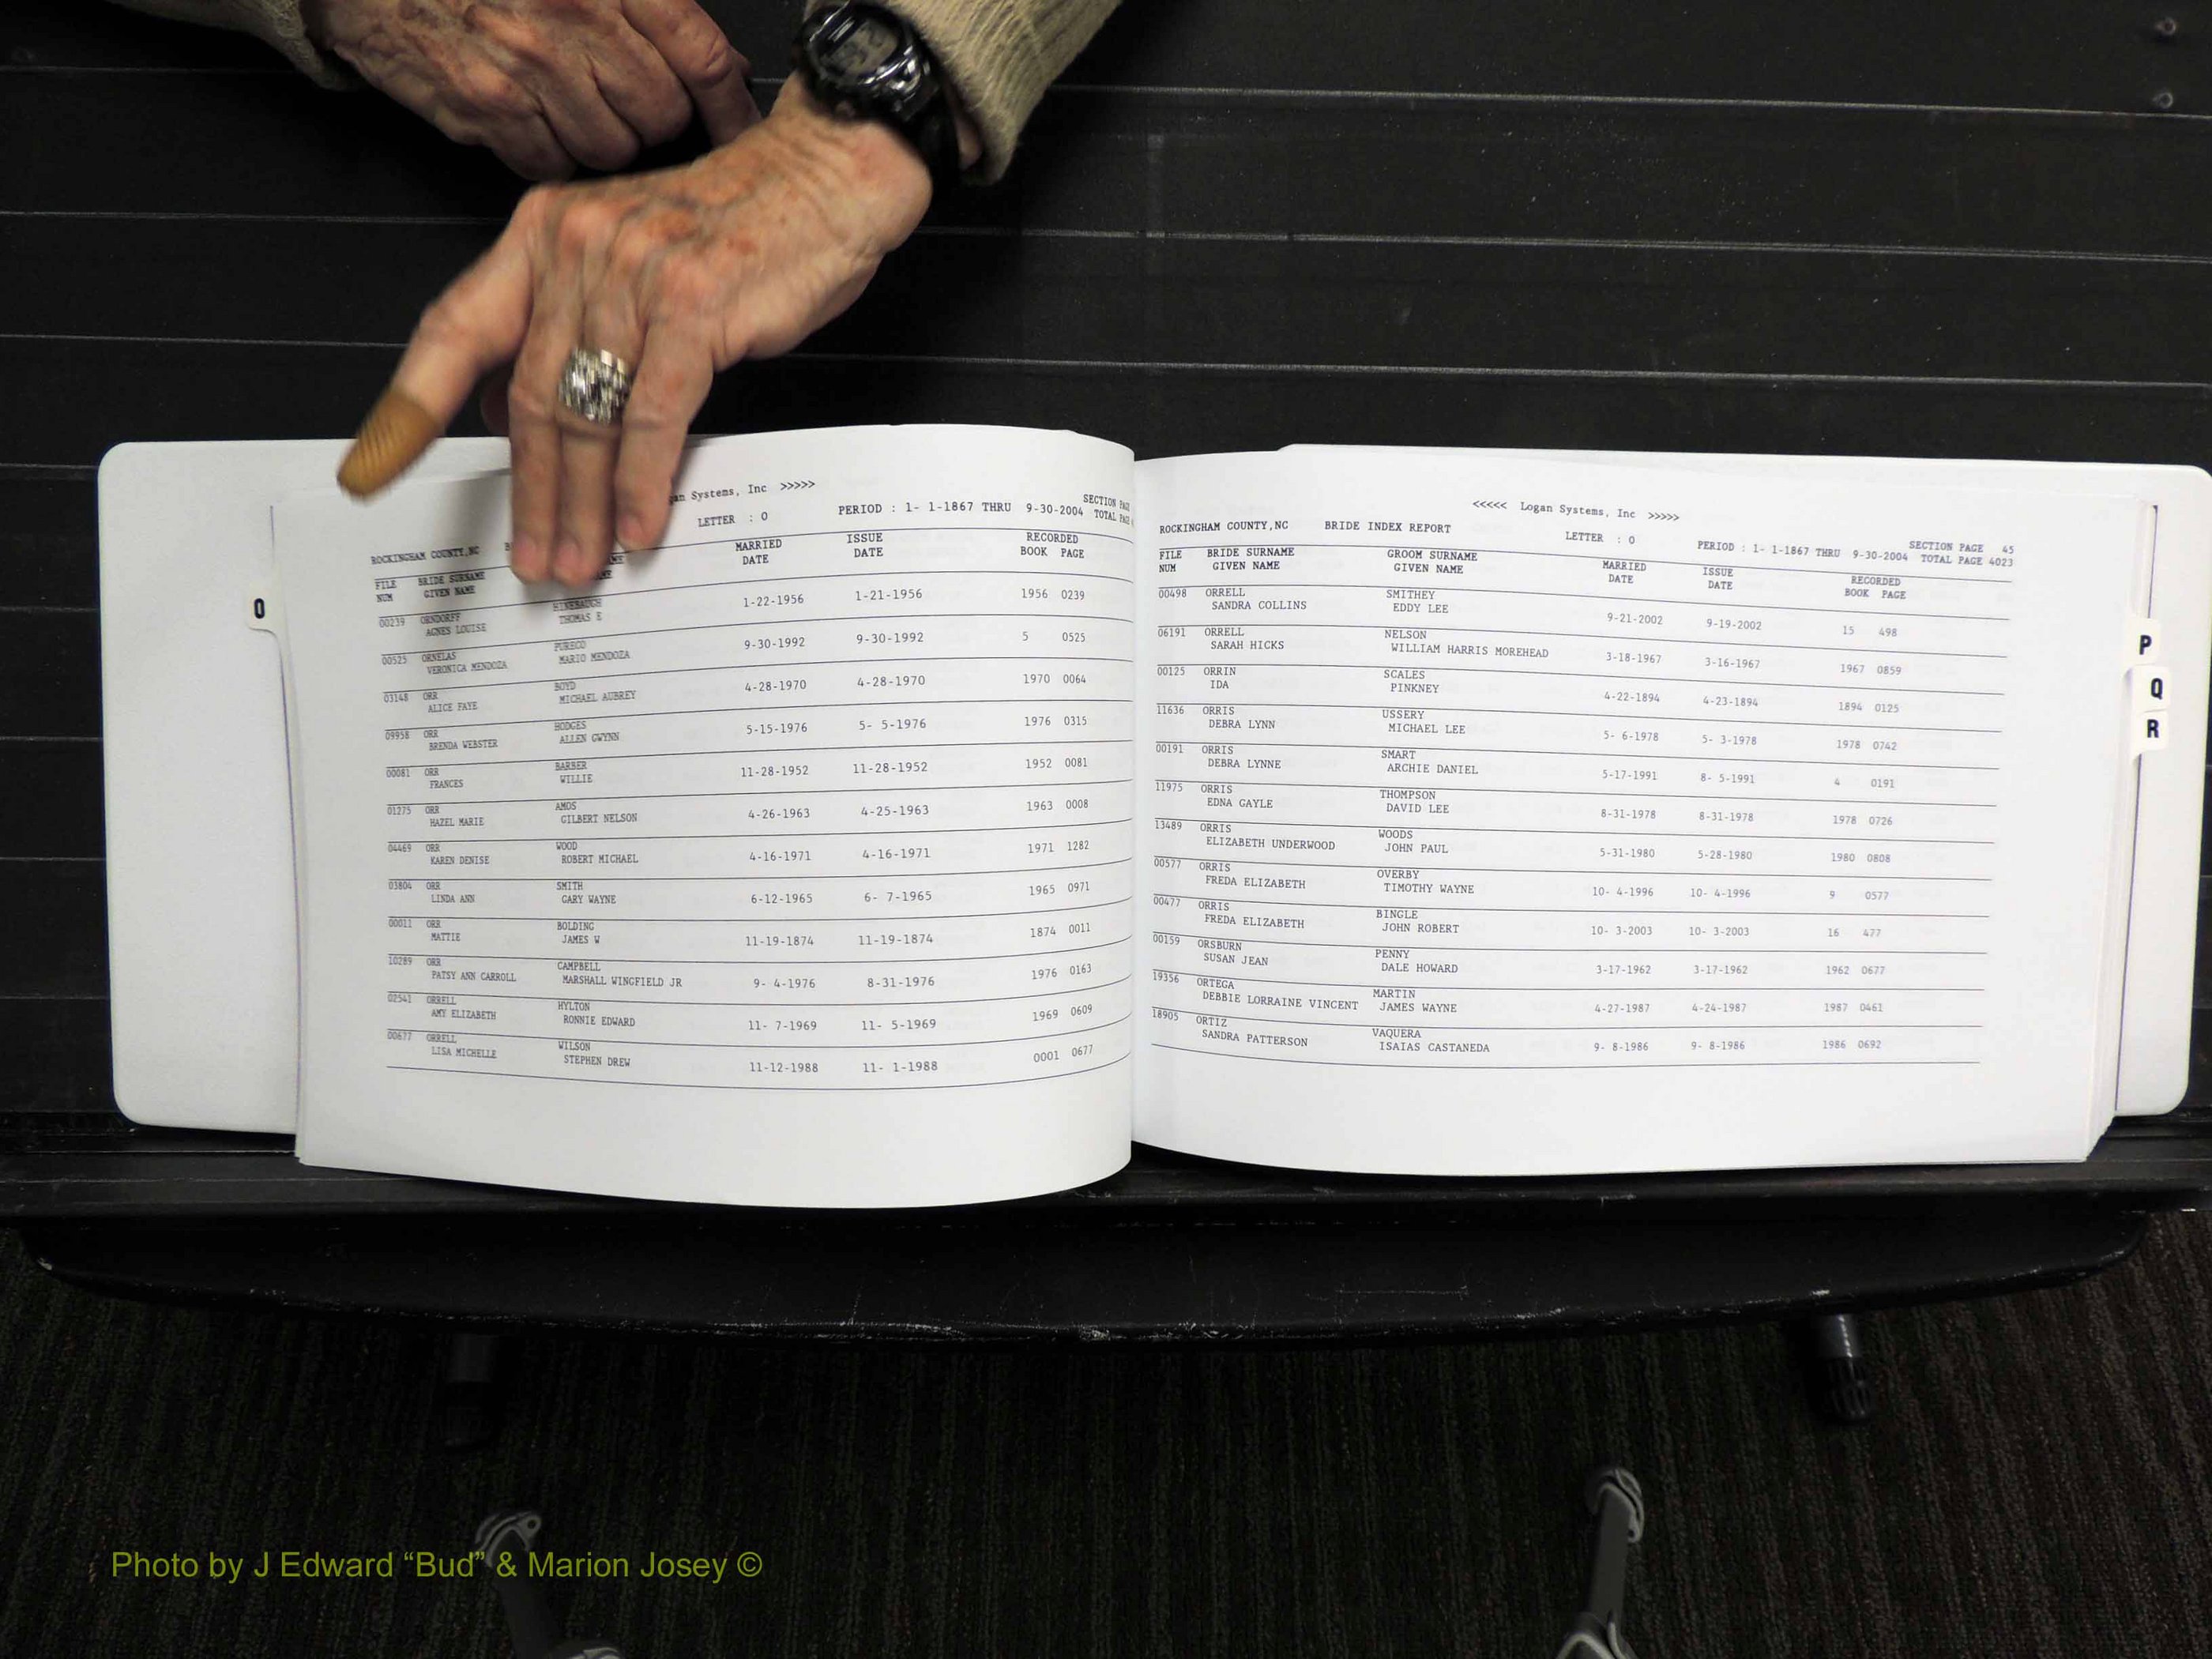 ogan Systems, Inc >>>>>
LETTER : O PERIOD : 1- 1-1867 THRU 9-30-2004 SECTION PAGE
TOTAL
ROCKINGHAM COUNTY,NC
FILE BRIDE SURNAME MARRIED ISSUE RECORDED
NUM GIVEN NAME DATE DATE BOOK PAGE
00239 ORNDORFF HINEBAUGH 1-22-1956 1-21-1956 1956 0239
AGNES LOUISE THOMAS E
00525 ORNELAS PURECO 9-30-1992 9-30-1992 5 0525
VERONICA MENDOZA MARIO MENDOZA
03148 ORR BOYD 4-28-1970 4-28-1970 1970 0064
ALICE FAYE MICHAEL AUBREY
09958 ORR HODGES 5-15-1976 5- 5-1976 1976 0315
BRENDA WEBSTER ALLEN GWYNN
00081 ORR BARBER 11-28-1952 11-28-1952 1952 0081
FRANCES WILLIE
01275 ORR AMOS 4-26-1963 4-25-1963 1963 0008
HAZEL MARIE GILBERT NELSON
04469 ORR WOOD 4-16-1971 4-16-1971 1971 1282
KAREN DENISE ROBERT MICHAEL
03804 ORR SMITH 6-12-1965 6- 7-1965 1965 0971
LINDA ANN GARY WAYNE
00011 ORR BOLDING 11-19-1874 11-19-1874 1874 0011
MATTIE JAMES W
10289 ORR CAMPBELL 9- 4-1976 8-31-1976 1976 0163
PATSY ANN CARROLL MARSHALL WINGFIELD JR
02541 ORRELL HYLTON 11- 7-1969 11- 5-1969 1969 0609
AMY ELIZABETH RONNIE EDWARD
00677 ORRELL WILSON 11-12-1988 11- 1-1988 0001 0677
LISA MICHELLE STEPHEN DREW
O
<<<<< Logan Systems, Inc >>>>>
ROCKINGHAM COUNTY,NC BRIDE INDEX REPORT LETTER : O PERIOD : 1- 1-1867 THRU 9-30-2004 SECTION PAGE 45
TOTAL PAGE 4023
FILE BRIDE SURNAME GROOM SURNAME MARRIED ISSUE RECORDED
NUM GIVEN NAME GIVEN NAME DATE DATE BOOK PAGE
00498 ORRELL SMITHEY 9-21-2002 9-19-2002 15 498
SANDRA COLLINS EDDY LEE
06191 ORRELL NELSON 3-18-1967 3-16-1967 1967 0859
SARAH HICKS WILLIAM HARRIS MOREHEAD
00125 ORRIN SCALES 4-22-1894 4-23-1894 1894 0125
IDA PINKNEY
11636 ORRIS USSERY 5- 6-1978 5- 3-1978 1978 0742
DEBRA LYNN MICHAEL LEE
00191 ORRIS SMART 5-17-1991 8- 5-1991 4 0191
DEBRA LYNNE ARCHIE DANIEL
11975 ORRIS THOMPSON 8-31-1978 8-31-1978 1978 0726
EDNA GAYLE DAVID LEE
13489 ORRIS WOODS 5-31-1980 5-28-1980 1980 0808
ELIZABETH UNDERWOOD JOHN PAUL
00577 ORRIS OVERBY 10- 4-1996 10- 4-1996 9 0577
FREDA ELIZABETH TIMOTHY WAYNE
00477 ORRIS BINGLE 10- 3-2003 10- 3-2003 16 477
FREDA ELIZABETH JOHN ROBERT
00159 ORSBURN PENNY 3-17-1962 3-17-1962 1962 0677
SUSAN JEAN DALE HOWARD
19356 ORTEGA MARTIN 4-27-1987 4-24-1987 1987 0461
DEBBIE LORRAINE VINCENT JAMES WAYNE
18905 ORTIZ VAQUERA 9- 8-1986 9- 8-1986 1986 0692
SANDRA PATTERSON ISAIAS CASTANEDA
P
Q
R
Photo by J Edward “Bud” & Marion Josey ©